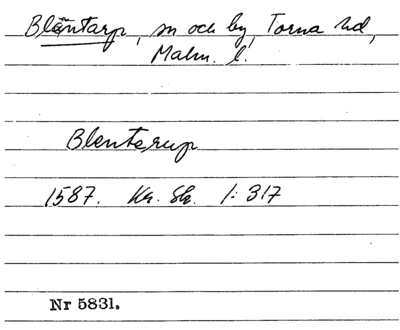 Bläntarp, sn och by, Torna hd,
Malm. l.
Blenterup
1587. Kr. Sk. 1:317
Nr 5831.